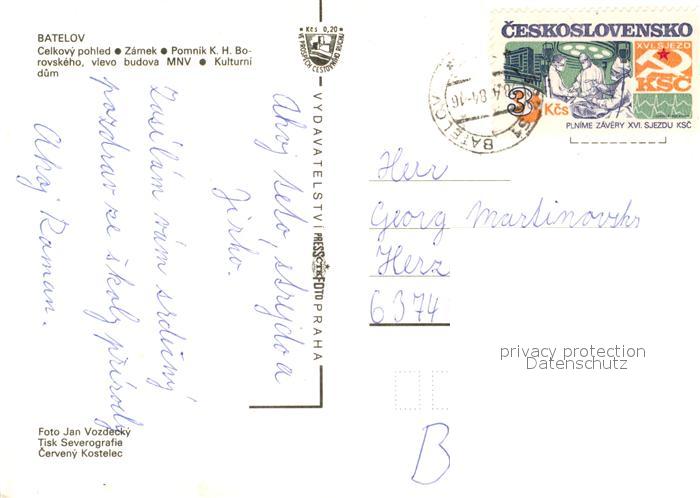 BATELOV
Celkový pohled ● Zámek ● Pomník K. H. Bo-
rovského, vlevo budova MNV ● Kulturní
dům
Kčs 0,20
VE PROSPĚCH CESTOVNÍHO RUCHU
VYDAVATELSTVÍ PRESSFOTO PRAHA
Ahoj teto, strejdo a
Jirko.
Zasílám vám srdečný
pozdrav ze školy přírody
Ahoj Raman.
ČESKOSLOVENSKO
XVI. SJEZD
KSČ
3 Kčs
PLNÍME ZÁVĚRY XVI. SJEZDU KSČ
BATELOV
84-16
Herr
Georg Martinovsky
Herz
6374
privacy protection
Datenschutz
B
Foto Jan Vozdecký
Tisk Severografie
Červený Kostelec